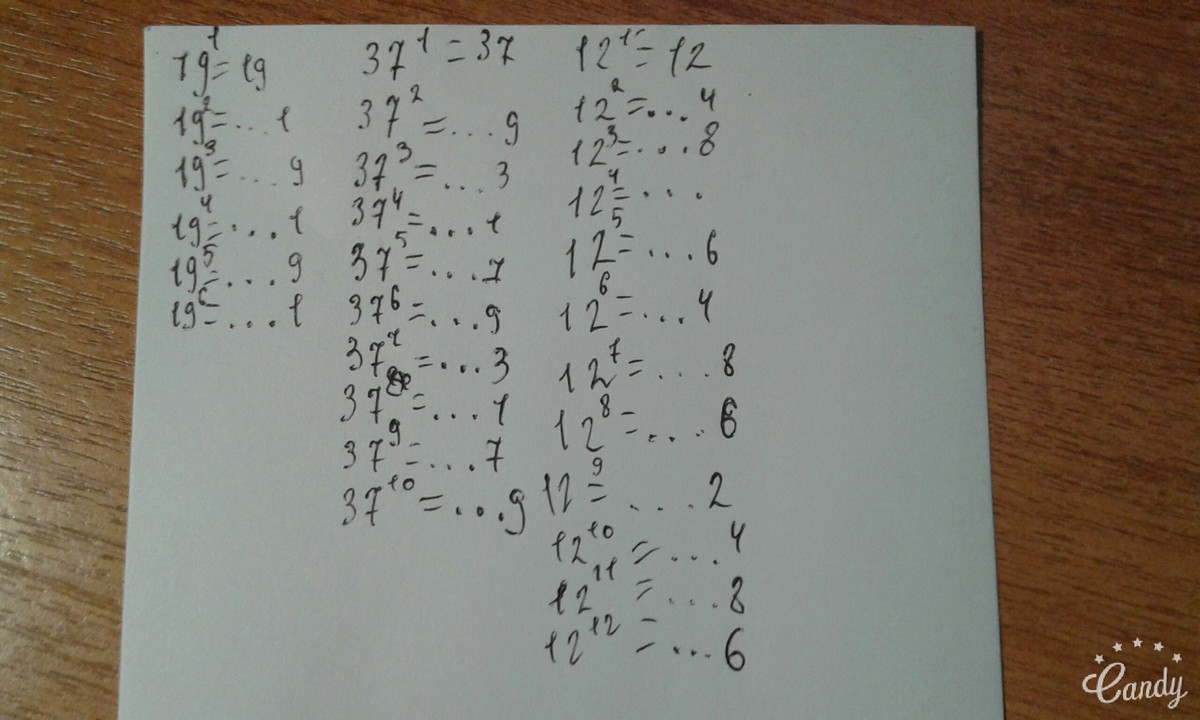 19¹=19
19²=...1
19³=...9
19⁴=...1
19⁵=...9
19⁶=...1
37¹=37
37²=...9
37³=...3
37⁴=...1
37⁵=...7
37⁶=...9
37⁷=...3
37⁸=...1
37⁹=...7
37¹⁰=...9
12¹=12
12²=...4
12³=...8
12⁴=....
12⁵=...6
12⁶=...4
12⁷=...8
12⁸=...6
12⁹=...2
12¹⁰=...4
12¹¹=...8
12¹²=...6
Candy